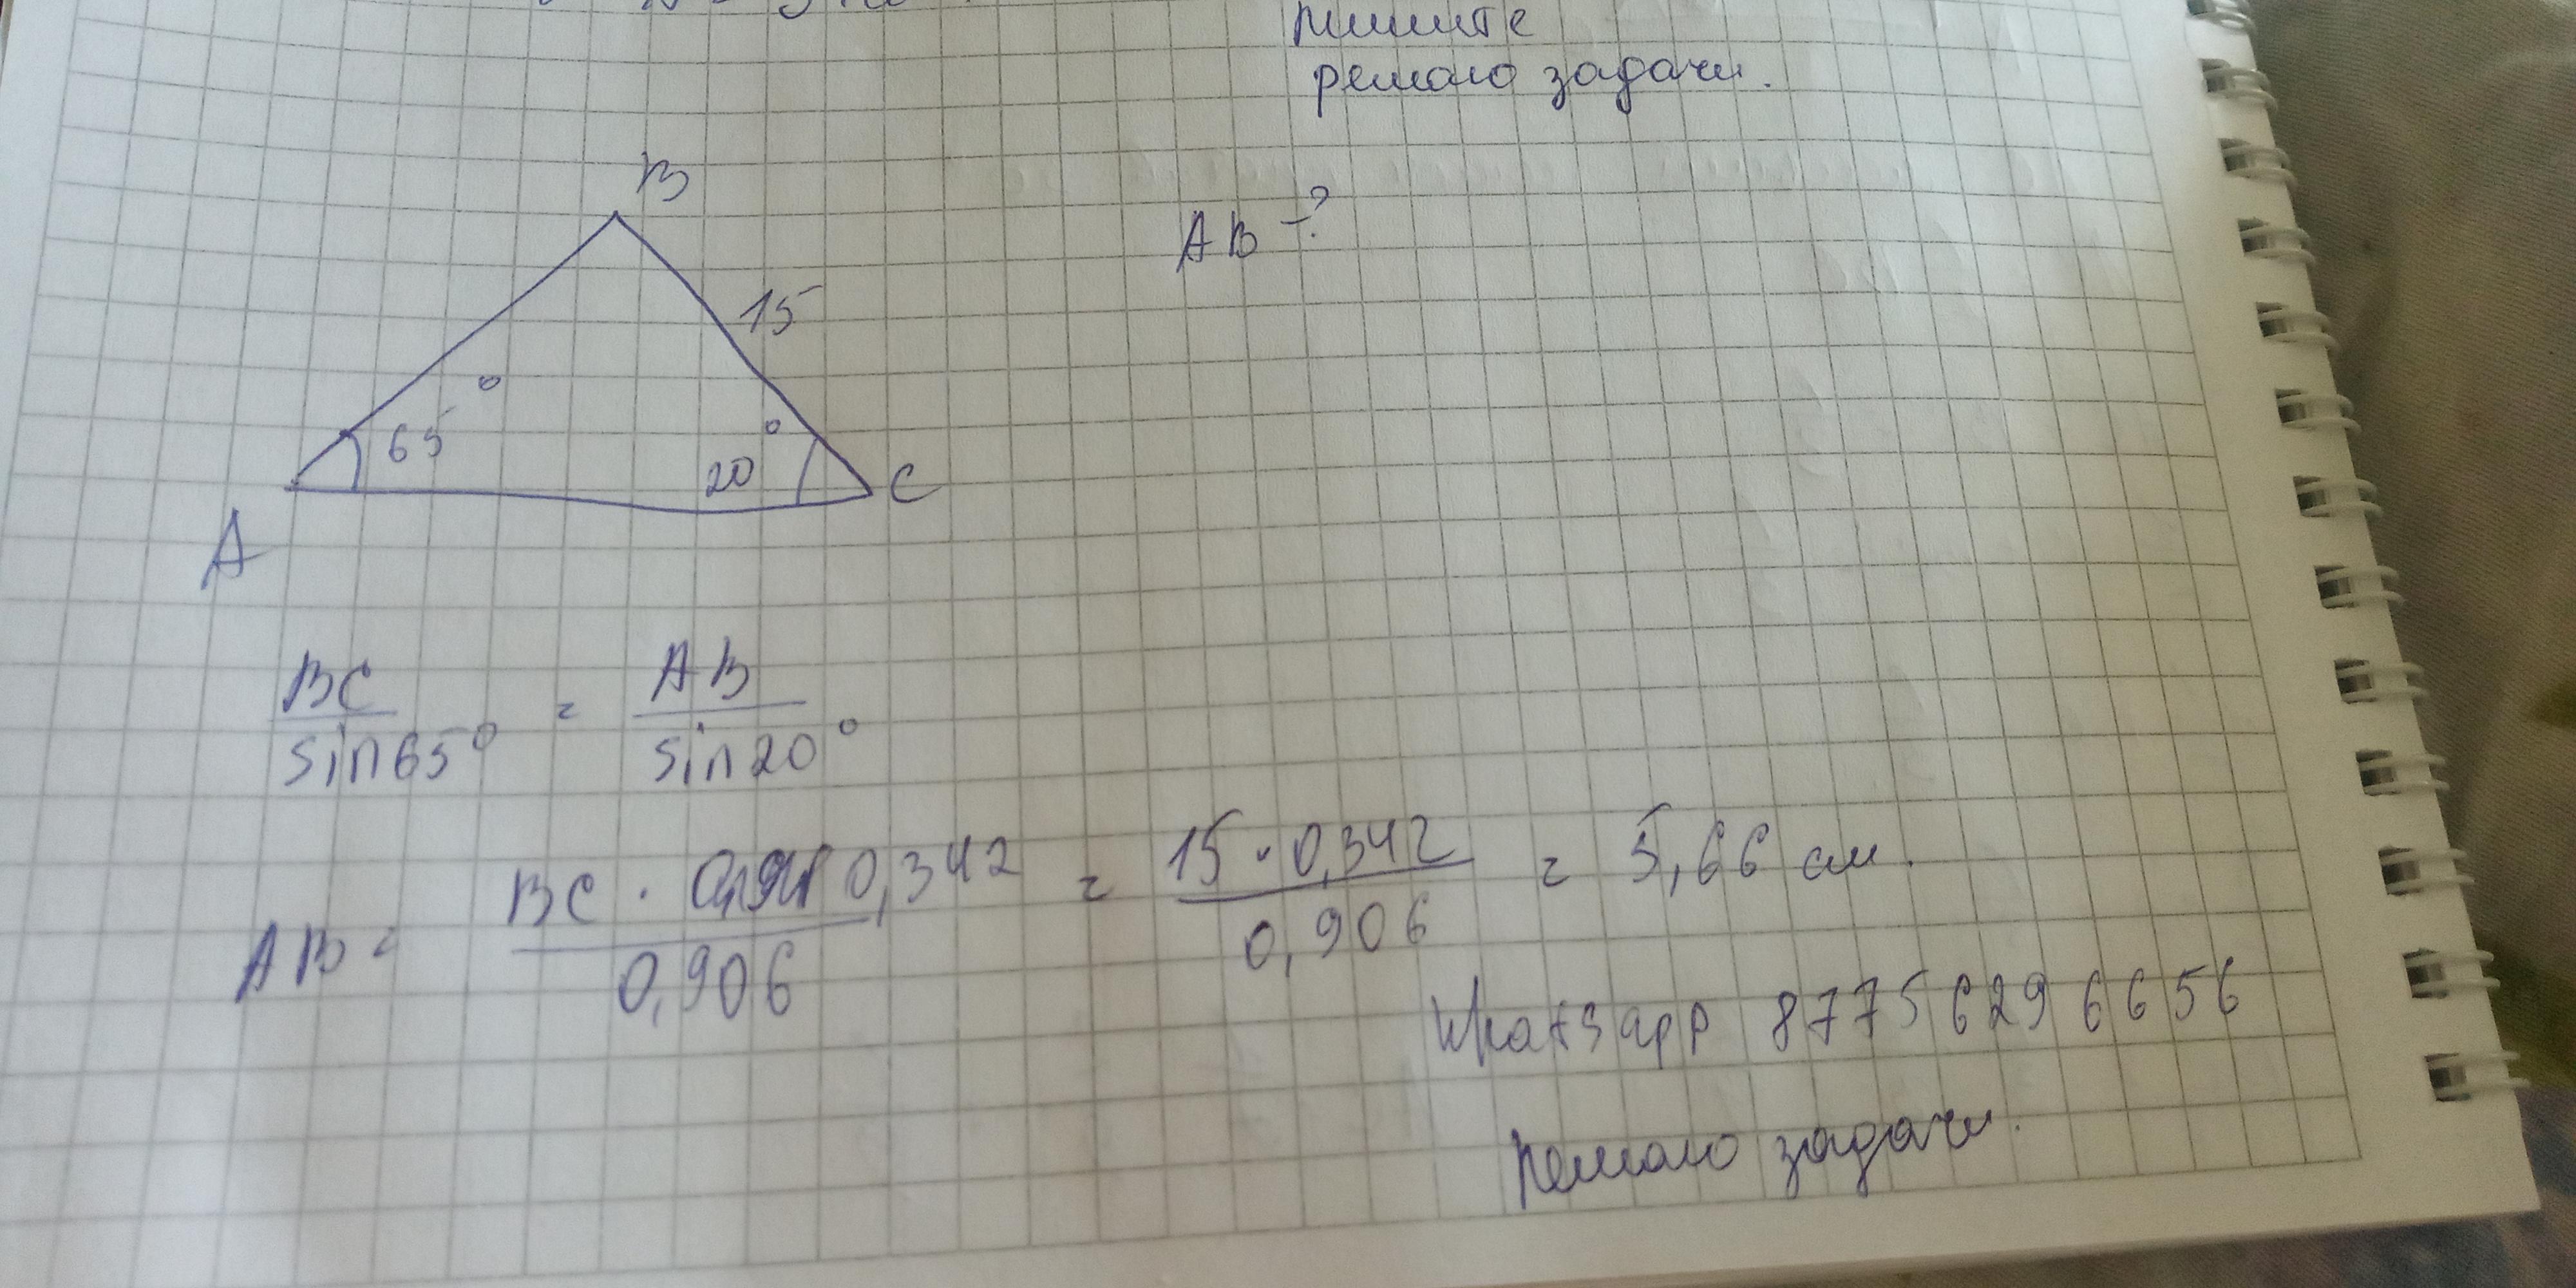 пишите
решаю задачи.
B
AB - ?
15
65°
20°
A
C
BC / sin65° = AB / sin20°
AB = BC · 0,342 / 0,906 = 15 · 0,342 / 0,906 = 5,66 см.
Whatsapp 87756296656
решаю задачи.